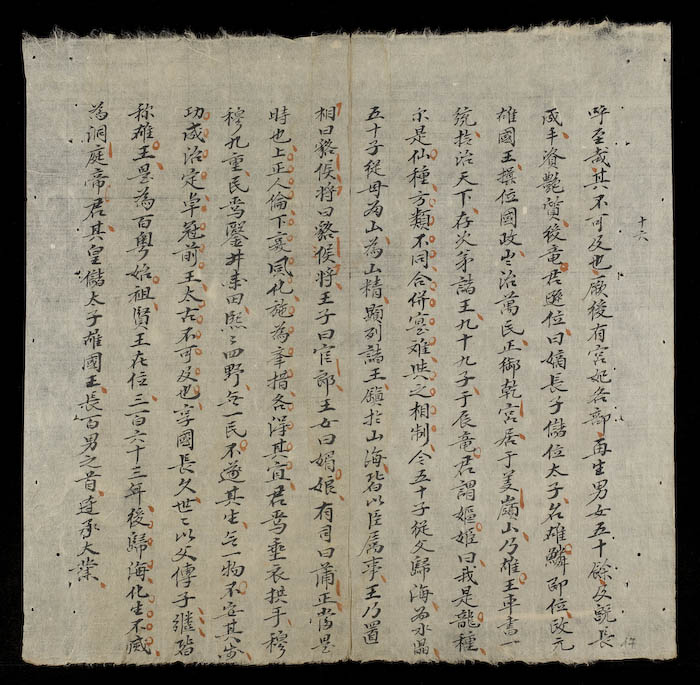 十六
呼至哉其不可及也厥後有宮妃各部再生男女五十餘及既長
成丰眷艷質後竜君遜位曰嫡長子儲位太子名雄麟即位改元
雄國王撰位國政出治萬民正御乾宮居于美嶺山乃雄王車書一
統括治天下存次第誌王九十九子于辰竜君謂嫗姬曰我是龍種
尔是仙種方類不同合併寔难與之相制令五十子從父歸海為水晶
五十子從母為山為山精顯列誌王鎮扵山海皆以臣属事王乃置
相曰貉侯將曰貉侯將王子曰官郎王女曰媚姬有司曰蒲正當是
時也上正人倫下風化施為舉措各淂其宜君焉垂衣拱手穆
穆九重民焉鑿井耕田熙〻四野無一民不遂其生無一物不安其
功成治定卓冠前王太古不可及也享國長久世〻以父傳子継皆
称雄王是為百粤始祖賢王在位三百六十三年後歸海化生不滅
為洞庭帝君其皇儲太子雄國王長百男之首承大業
17